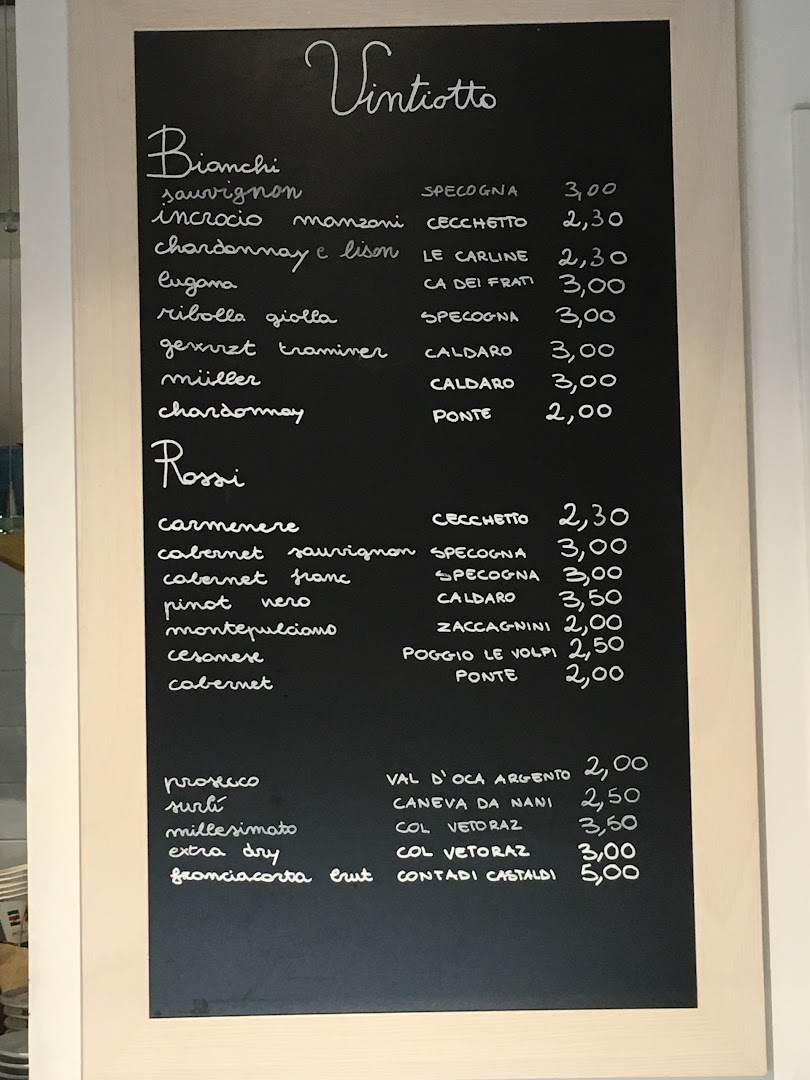 Vintiotto
Bianchi
sauvignon SPECOGNA 3,00
incrocio manzoni CECCHETTO 2,30
chardonnay e lison LE CARLINE 2,30
lugana CA DEI FRATI 3,00
ribolla giolla SPECOGNA 3,00
gewurzt traminer CALDARO 3,00
müller CALDARO 3,00
chardonnay PONTE 2,00
Rossi
carmenere CECCHETTO 2,30
cabernet sauvignon SPECOGNA 3,00
cabernet franc SPECOGNA 3,00
pinot nero CALDARO 3,50
montepulciano ZACCAGNINI 2,00
cesanese POGGIO LE VOLPI 2,50
cabernet PONTE 2,00
prosecco VAL D'OCA ARGENTO 2,00
surlì CANEVA DA NANI 2,50
millesimato COL VETORAZ 3,50
extra dry COL VETORAZ 3,00
franciacorta brut CONTADI CASTALDI 5,00